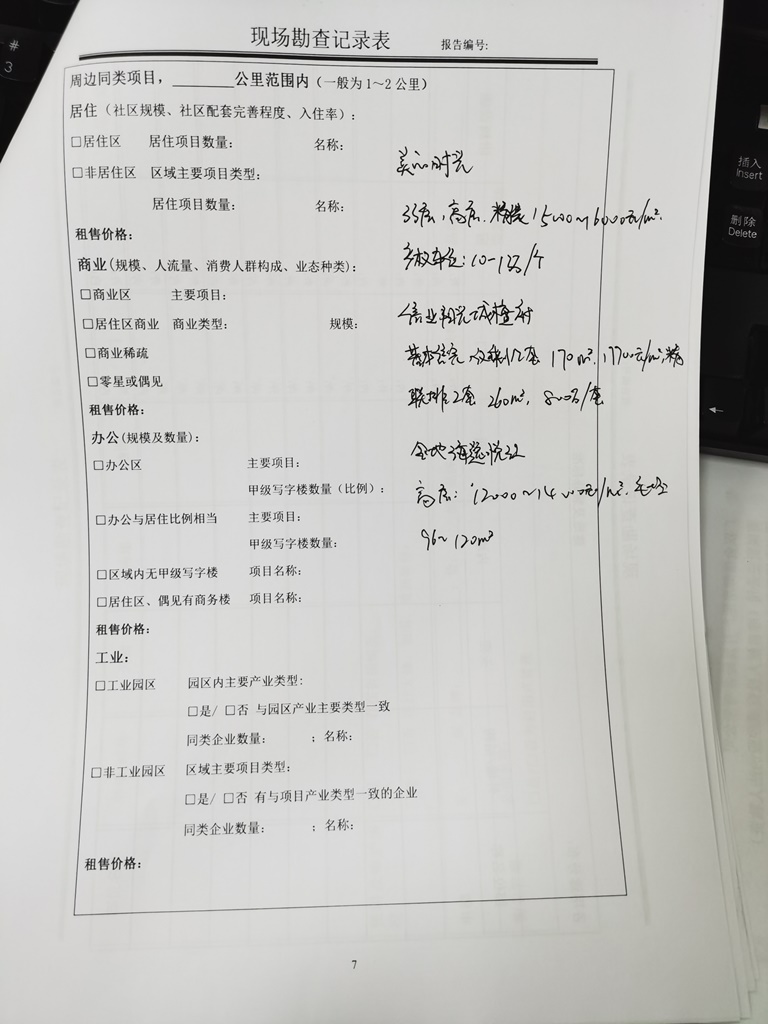 现场勘查记录表 报告编号:
周边同类项目，________公里范围内（一般为1～2公里）
居住（社区规模、社区配套完善程度、入住率）:
□居住区 居住项目数量: 名称:
□非居住区 区域主要项目类型:
美的时光
居住项目数量: 名称:
33层，高层.精装 15000~16000元/m².
租售价格:
商业(规模、人流量、消费人群构成、业态种类):
产权车位: 10-13万/个
□商业区 主要项目:
□居住区商业 商业类型: 规模:
信业阳光城檀府
□商业稀疏
170m².
□零星或偶见
联排2套 260m².
租售价格:
办公(规模及数量):
□办公区 主要项目:
甲级写字楼数量（比例）:
高层: 12000~14000元/m².毛坯
□办公与居住比例相当 主要项目:
甲级写字楼数量:
96~120m²
□区域内无甲级写字楼 项目名称:
□居住区、偶见有商务楼 项目名称:
租售价格:
工业:
□工业园区 园区内主要产业类型:
□是/ □否 与园区产业主要类型一致
同类企业数量: ；名称:
□非工业园区 区域主要项目类型:
□是/ □否 有与项目产业类型一致的企业
同类企业数量: ；名称:
租售价格:
7
#
3
插入
Insert
删除
Delete